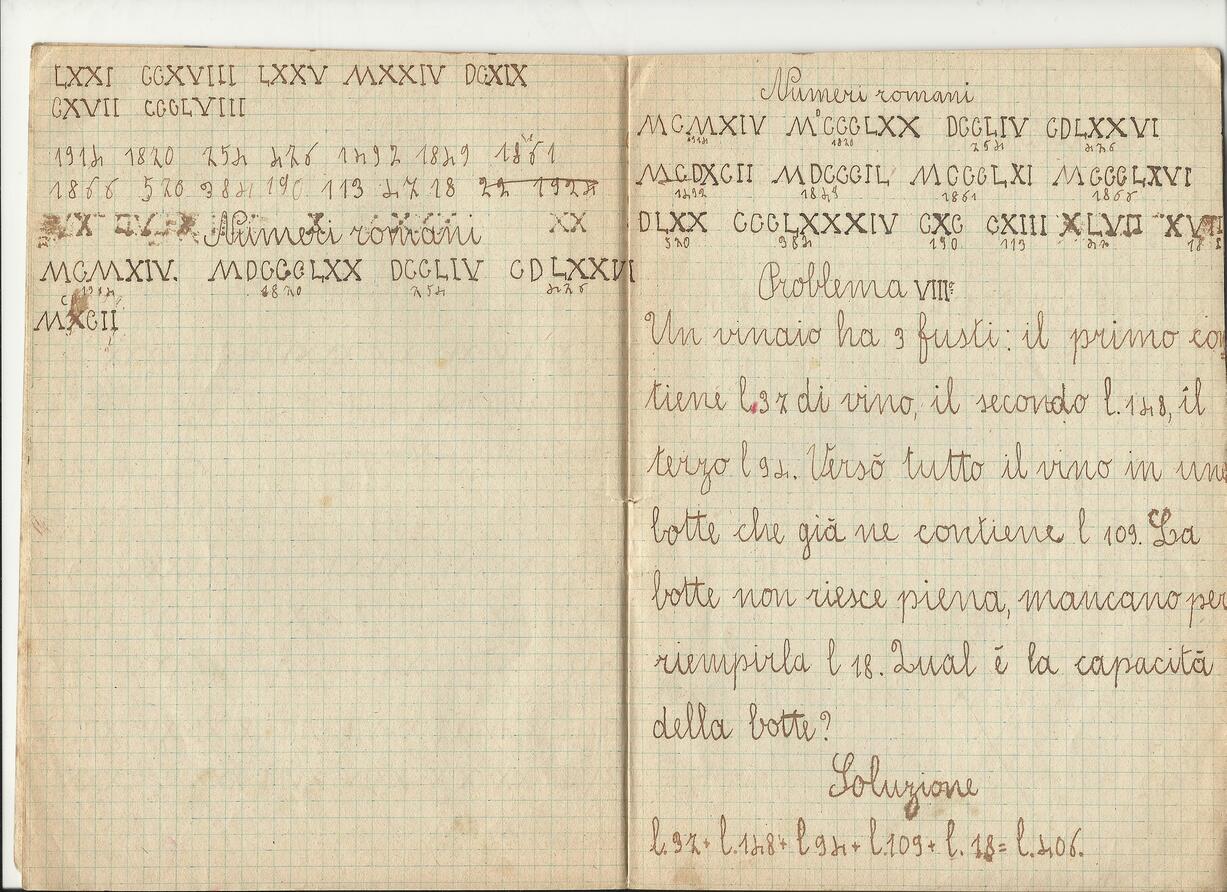 LXXI CCXVIII LXXV MXXIV DCXIX
CXVII CCCLVIII
1914 1870 754 476 1492 1849 1861
1866 570 384 190 113 47 18 22 1924
Numeri romani XX
MCMXIV. MDCCCLXX DCCLIV CDLXXVI
1914 1870 754 476
MXCII
Numeri romani
MCMXIV MDCCCLXX DCCLIV CDLXXVI
1914 1870 754 476
MCDXCII MDCCCIL MCCCLXI MCCCLXVI
1492 1849 1861 1866
DLXX CCCLXXXIV CXC CXIII XLVII XVIII
570 384 190 113 47 18
Problema VIIIº
Un vinaio ha 3 fusti: il primo con
tiene l.37 di vino, il secondo l.148, il
terzo l 94. Versò tutto il vino in una
botte che già ne contiene l 109. La
botte non riesce piena, mancano per
riempirla l 18. Qual è la capacità
della botte?
Soluzione
l.37+ l.148+ l 94+ l.109+ l. 18= l.406.